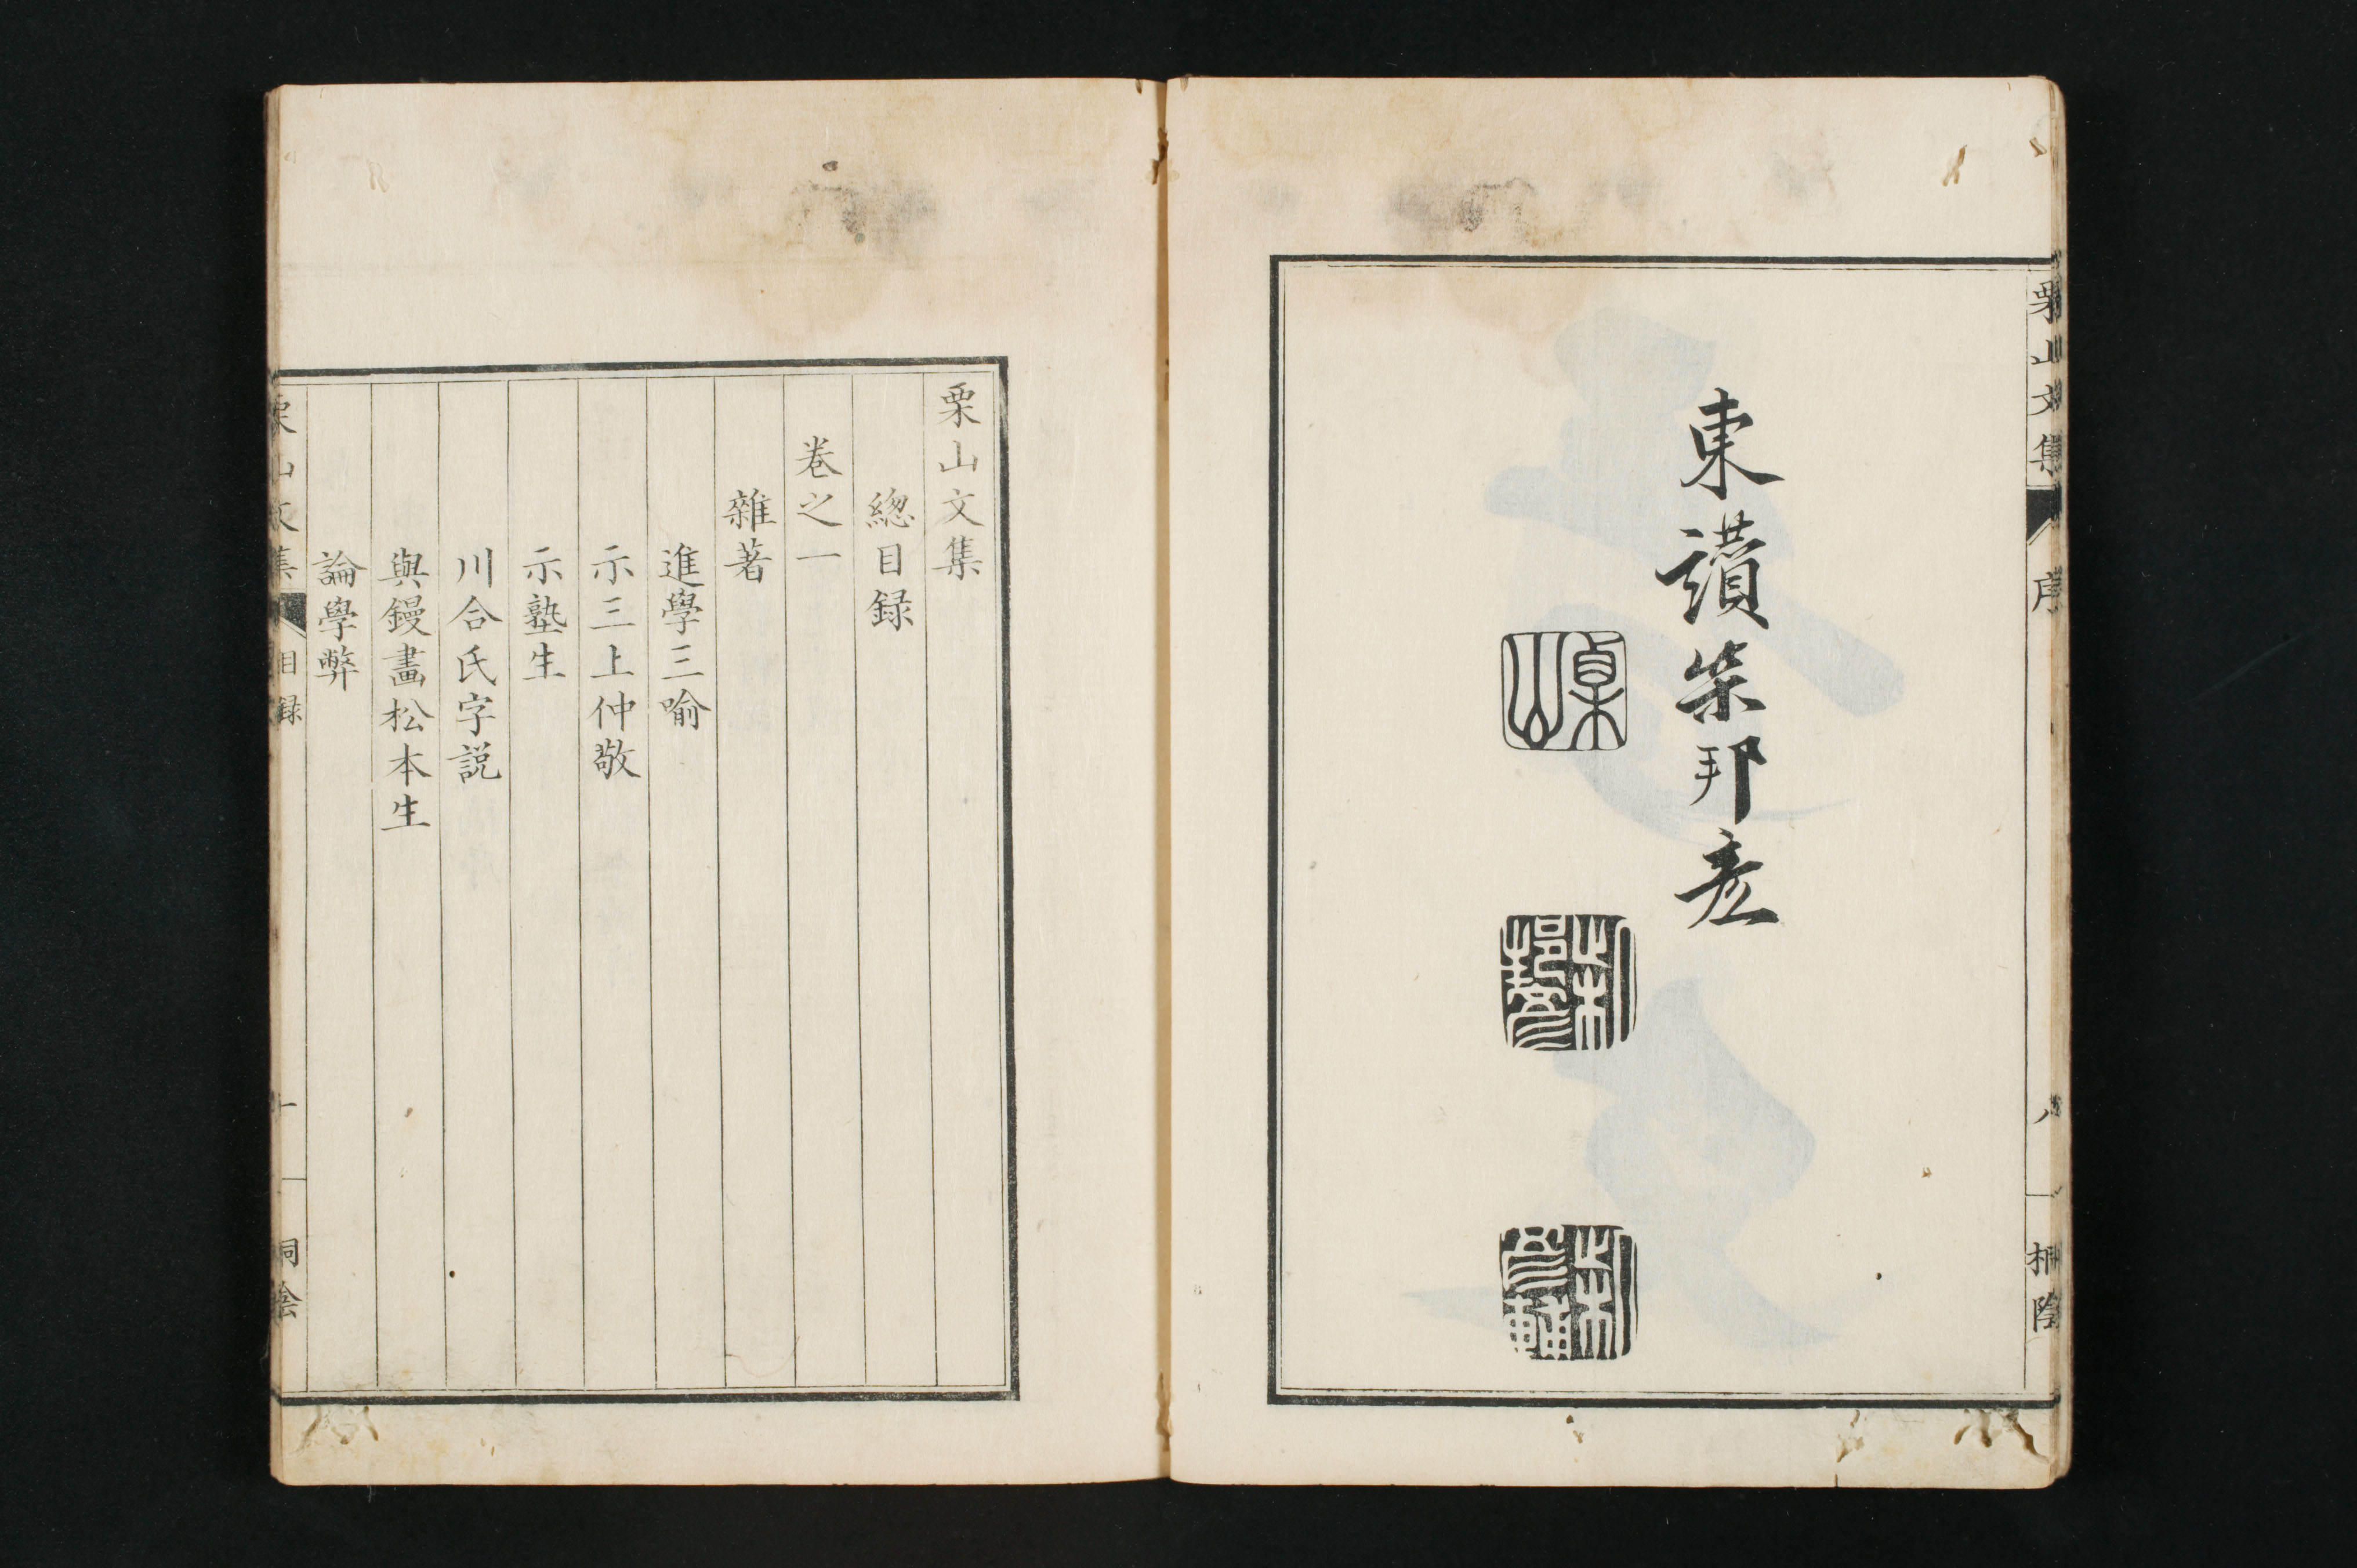 栗山文集
序
八
桐陰
東讃柴邦彦
栗山
栗山文集
總目録
卷之一
雜著
進學三喻
示三上仲敬
示塾生
川合氏字説
與鏝畫松本生
論學弊
栗山文集
目録
一
桐陰